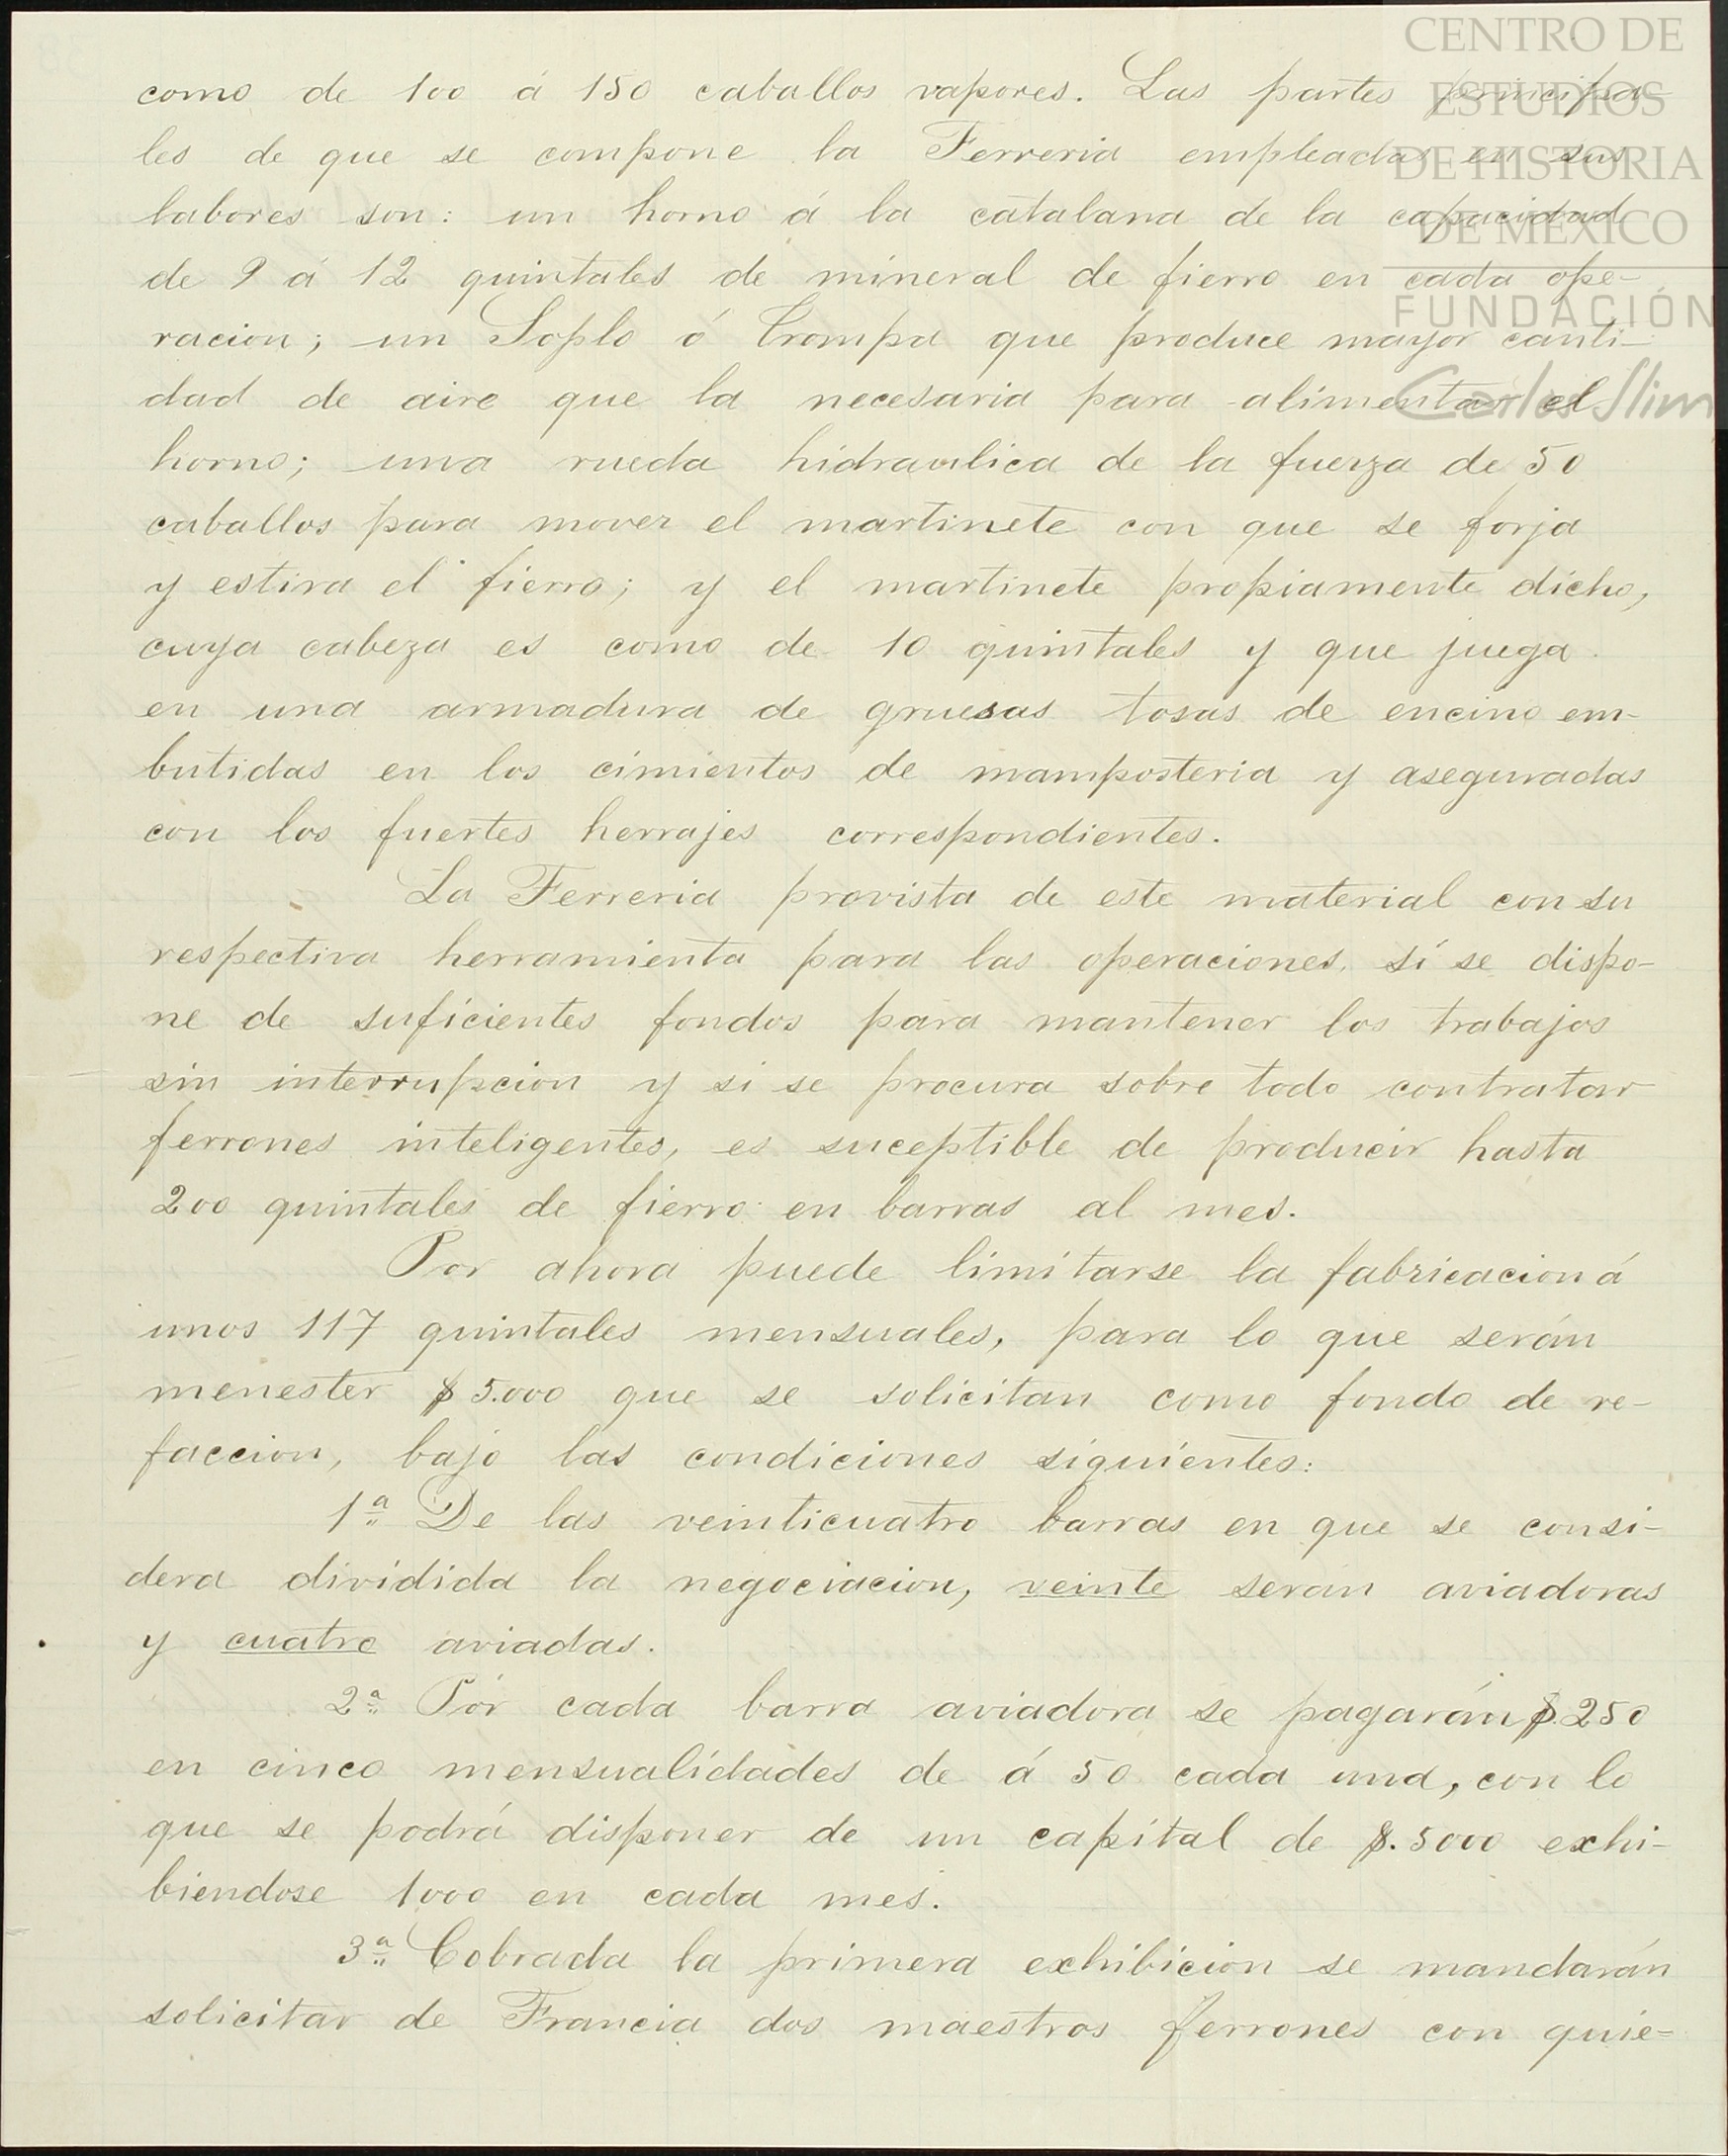 como de 100 á 150 caballos vapores. Las partes principa-
les de que se compone la Ferreria empleadas en sus
labores son: un horno á la catalana de la capacidad
de 9 á 12 quintales de mineral de fierro en cada ope-
racion; un Soplo ó Trompa que produce mayor canti-
dad de aire que la necesaria para alimentar el
horno; una rueda hidraulica de la fuerza de 50
caballos para mover el martinete con que se forja
y estira el fierro; y el martinete propiamente dicho,
cuya cabeza es como de 10 quintales y que juega
en una armadura de gruesas tosas de encino em-
butidas en los cimientos de mamposteria y aseguradas
con los fuertes herrajes correspondientes.
La Ferreria provista de este material con su
respectiva herramienta para las operaciones, si se dispo-
ne de suficientes fondos para mantener los trabajos
sin interrupcion y si se procura sobre todo contratar
ferrones inteligentes, es suceptible de producir hasta
200 quintales de fierro en barras al mes.
Por ahora puede limitarse la fabricacion á
unos 117 quintales mensuales, para lo que serán
menester $5.000 que se solicitan como fondo de re-
faccion, bajo las condiciones siguientes:
1ª De las veinticuatro barras en que se consi-
dera dividida la negociacion, veinte seran aviadoras
y cuatro aviadas.
2ª Por cada barra aviadora se pagarán $.250
en cinco mensualidades de á 50 cada una, con lo
que se podrá disponer de un capital de $.5000 exhi-
biendose 1000 en cada mes.
3ª Cobrada la primera exhibicion se mandarán
solicitar de Francia dos maestros ferrones con quie-
CENTRO DE
ESTUDIOS
DE HISTORIA
DE MÉXICO
FUNDACIÓN
Carlos Slim